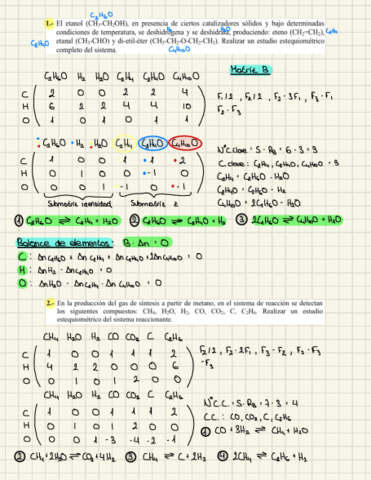 C₂H₆O
1.- El etanol (CH₃-CH₂OH), en presencia de ciertos catalizadores sólidos y bajo determinadas
condiciones de temperatura, se deshidrogena y se deshidrata, produciendo: eteno (CH₂=CH₂), C₂H₄
C₂H₄O etanal (CH₃-CHO) y di-etil-éter (CH₃-CH₂-O-CH₂-CH₃). Realizar un estudio estequiométrico
completo del sistema. C₄H₁₀O
Matriz B
C₂H₆O H₂ H₂O C₂H₄ C₂H₄O C₄H₁₀O
C 2 0 0 2 2 4
H 6 2 2 4 4 10
O 1 0 1 0 1 1
F₁/2, F₂/2, F₂-3F₁, F₃-F₁
F₂-F₃
C₂H₆O H₂ H₂O C₂H₄ C₂H₄O C₄H₁₀O
C 1 0 0 1 1 2
H 0 1 0 0 -1 0
O 0 0 1 -1 0 -1
Submatriz identidad Submatriz z
NºC.clave = S - R_B = 6 - 3 = 3
C.clave: C₂H₄, C₂H₄O, C₄H₁₀O = 3
C₂H₄ = C₂H₆O - H₂O
C₂H₄O = C₂H₆O - H₂
C₄H₁₀O = 2C₂H₆O - H₂O
① C₂H₆O ⇌ C₂H₄ + H₂O ② C₂H₆O ⇌ C₂H₄O + H₂ ③ 2C₂H₆O ⇌ C₄H₁₀O + H₂O
Balance de elementos: B · Δn = 0
C: Δn C₂H₆O + Δn C₂H₄ + Δn C₂H₄O + 2Δn C₄H₁₀O = 0
H: Δn H₂ - Δn C₂H₄O = 0
O: Δn H₂O - Δn C₂H₄ - Δn C₄H₁₀O = 0
2.- En la producción del gas de síntesis a partir de metano, en el sistema de reacción se detectan
los siguientes compuestos: CH₄, H₂O, H₂, CO, CO₂, C, C₂H₆. Realizar un estudio
estequiométrico del sistema reaccionante.
CH₄ H₂O H₂ CO CO₂ C C₂H₆
C 1 0 0 1 1 1 2
H 4 2 2 0 0 0 6
O 0 1 0 1 2 0 0
F₂/2, F₂-2F₁, F₃-F₂, F₂-F₃
-F₃
CH₄ H₂O H₂ CO CO₂ C C₂H₆
C 1 0 0 1 1 1 2
H 0 1 0 1 2 0 0
O 0 0 1 -3 -4 -2 -1
NºC.C. = S - R_B = 7 - 3 = 4
C.C.: CO, CO₂, C, C₂H₆
① CO + 3H₂ ⇌ CH₄ + H₂O
② CH₄ + 2H₂O ⇌ CO₂ + 4H₂ ③ CH₄ ⇌ C + 2H₂ ④ 2CH₄ ⇌ C₂H₆ + H₂